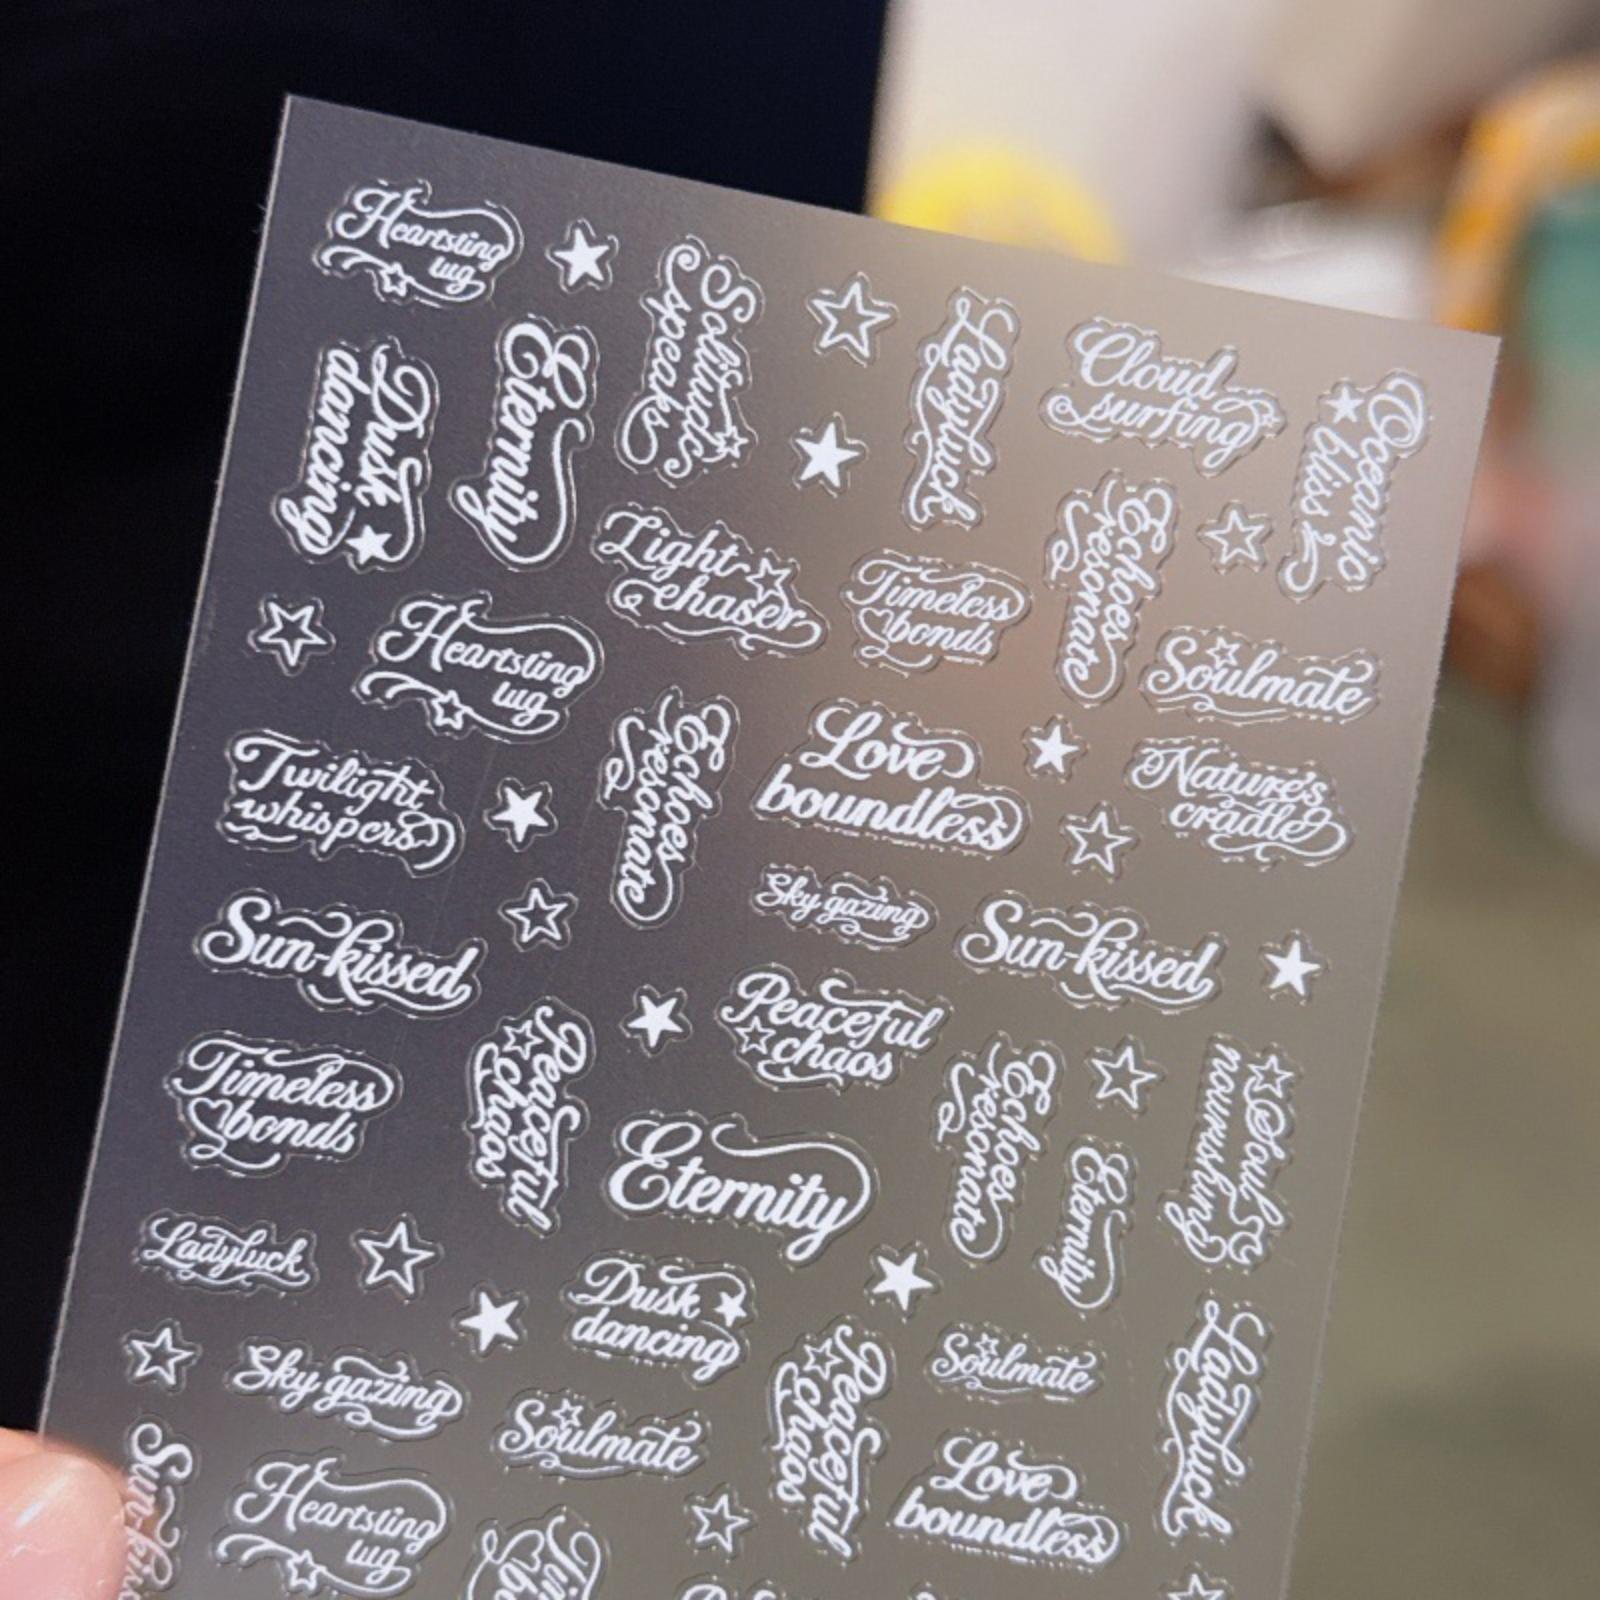 Heartsting
tug
Solitude
speaks
Ladyluck
Cloud
surfing
Oceanic
bliss
Dusk
dancing
Eternity
Light
chaser
Timeless
bonds
Echoes
resonate
Soulmate
Heartsting
tug
Twilight
whispers
Echoes
resonate
Love
boundless
Nature's
cradle
Sky gazing
Sun-kissed
Sun-kissed
Peaceful
chaos
Timeless
bonds
Peaceful
chaos
Eternity
Echoes
resonate
Eternity
Soul
nourishing
Ladyluck
Dusk
dancing
Soulmate
Ladyluck
Sky gazing
Peaceful
chaos
Soulmate
Love
boundless
Heartsting
tug